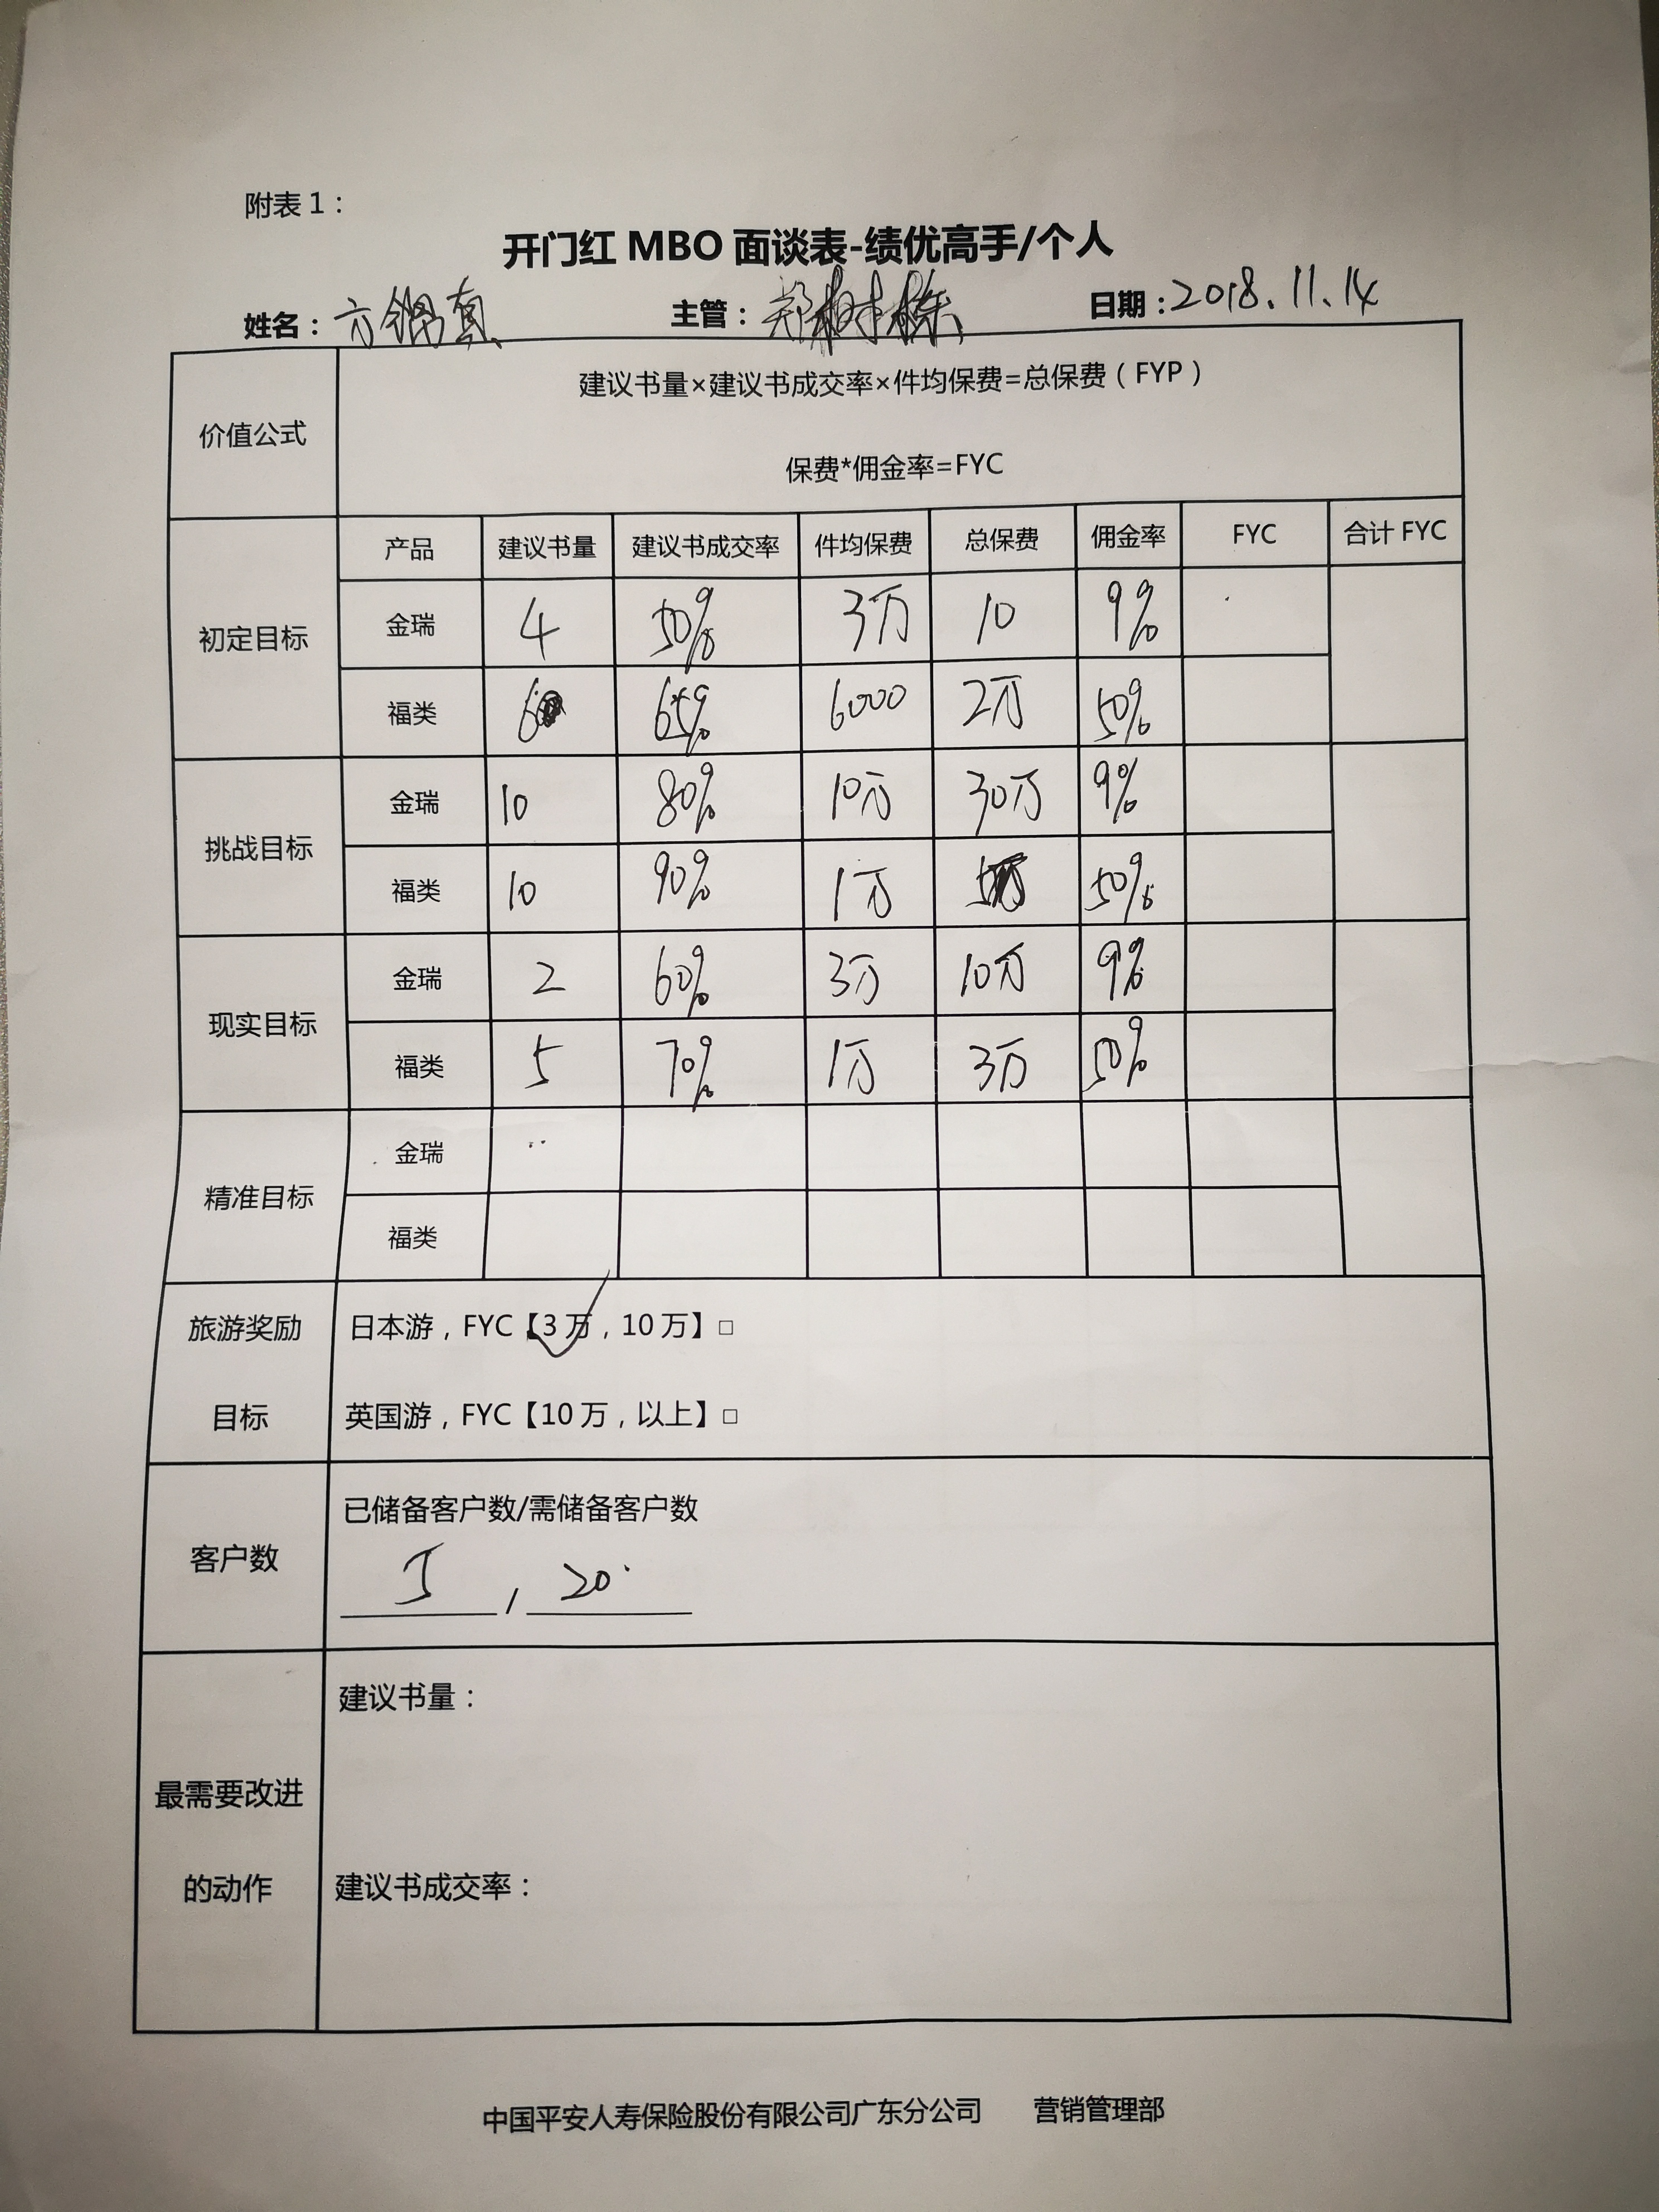 附表1：
开门红 MBO 面谈表-绩优高手/个人
姓名： 主管： 日期：2018.11.14
价值公式 建议书量×建议书成交率×件均保费=总保费（FYP）
保费*佣金率=FYC
产品 建议书量 建议书成交率 件均保费 总保费 佣金率 FYC 合计 FYC
初定目标
金瑞 4 50% 3万 10 9%
福类 6 65% 6000 2万 50%
挑战目标
金瑞 10 80% 10万 30万 9%
福类 10 90% 1万 50%
现实目标
金瑞 2 60% 3万 10万 9%
福类 5 70% 1万 3万 50%
精准目标
金瑞
福类
旅游奖励
目标
日本游，FYC【3万，10万】□
英国游，FYC【10万，以上】□
客户数
已储备客户数/需储备客户数
5 / 20
最需要改进
的动作
建议书量：
建议书成交率：
中国平安人寿保险股份有限公司广东分公司 营销管理部